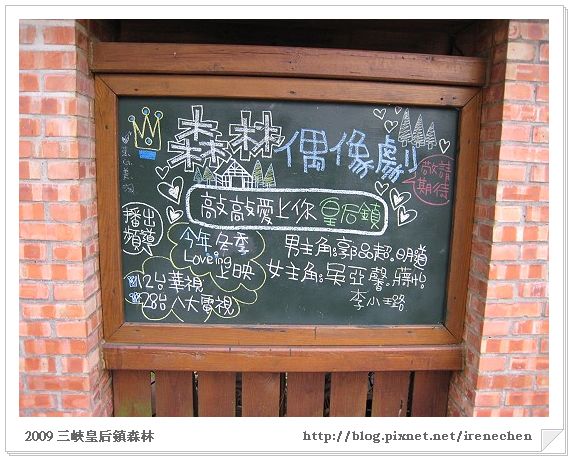 森林偶像劇
敬請
期待
敲敲愛上你 皇后鎮
播出
頻道
今年冬季
Loveing
上映
男主角:郭品超.明道
女主角:吳亞馨.蔣怡
李小璐
12台華視
28台八大電視
2009 三峽皇后鎮森林
http://blog.pixnet.net/irenechen